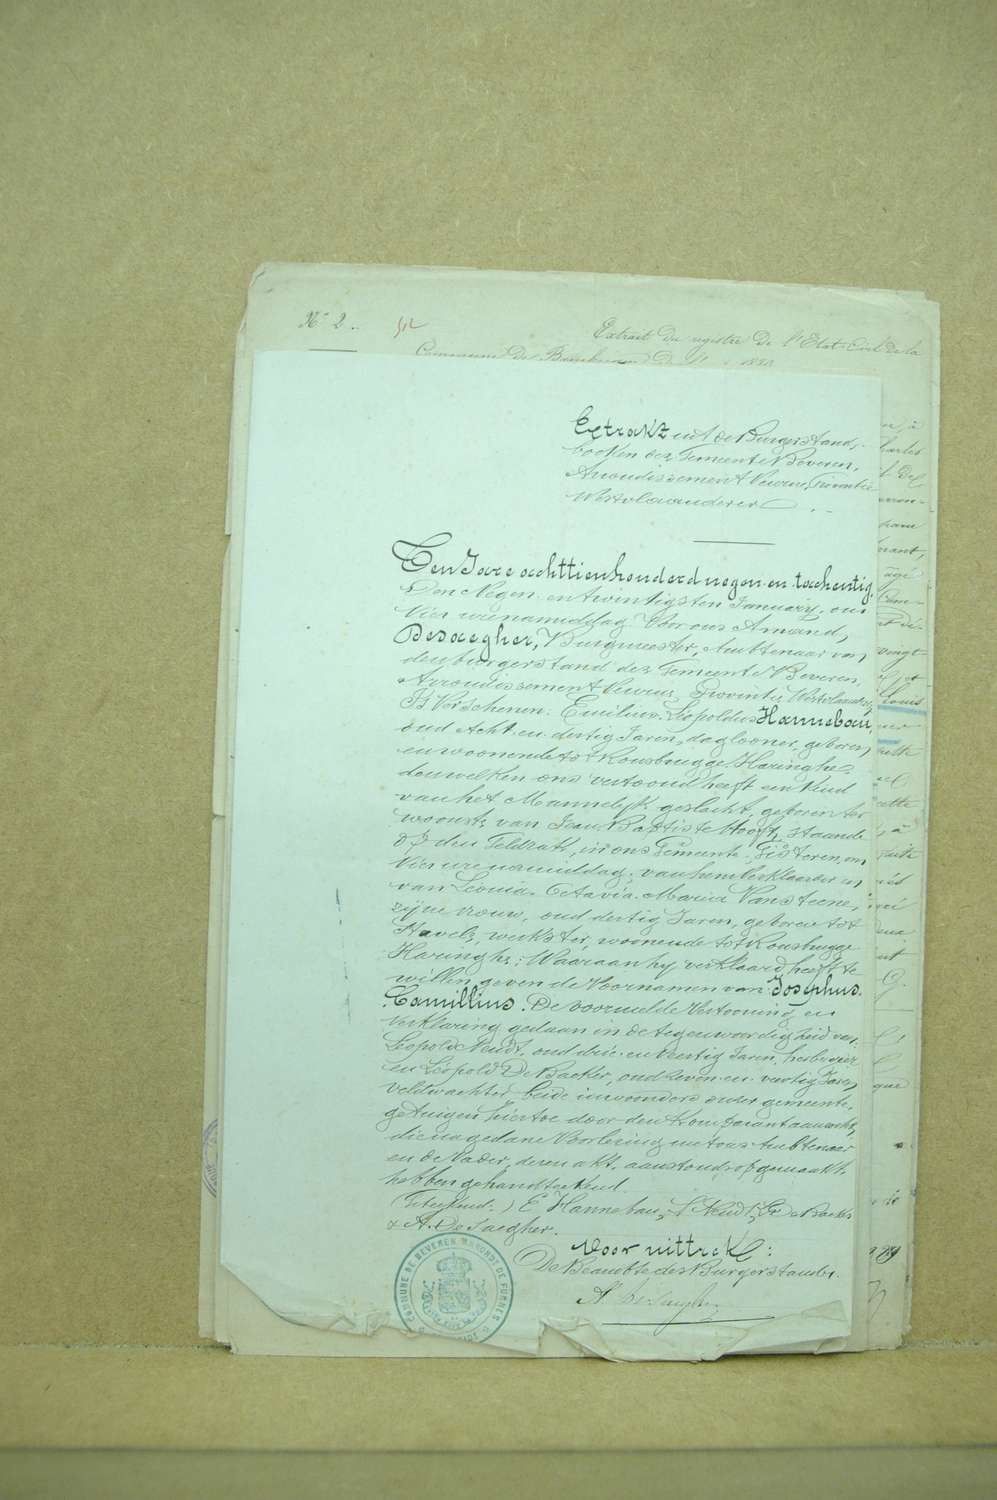 No 2.
Extrait du registre de l'Etat-Civil de la
Commune de
Extrakt uit de Burgerstand,
boeken der Gemeente Beveren,
Arrondissement Veurne, Provintie
Westvlaanderen
Ten Jare achttienhonderd negen en tachentig,
den Negen en twintigsten January, om
Vier ure namiddag Voor ons Amand,
Desaegher, Burgmeester, Ambtenaar van
den burgerstand der Gemeente Beveren,
Arrondissement Veurne, Provintie Westvlaandren,
Is Verschenen: Emilius Leopoldus Hannebau,
oud Acht en dertig Jaren, daglooner, geboren
en woonende tot Rousbrugge Haringhe,
denwelken ons vertoond heeft een Kind
van het Mannelijk geslacht, geboren ter
woonst van Jean Baptiste Hooft, staande
op den Feldzak, in ons Gemeente, Gisteren, om
Vier ure namiddag, van hem Verklaarder en
van Leonia Octavia Maria Vansteene,
zijne vrouw, oud dertig Jaren, geboren tot
Stavele, werkster, woonende tot Rousbrugge
Haringhe; Waaraan hy verklaard heeft te
willen geven de Voornamen van Josephus
Camillius. De voormelde Vertooning en
Verklaring gedaan in de tegenwoordigheid van
Leopold Neudt, oud drie en Veertig Jaren, herbergier
en Leopold De Backer, oud zeven en veertig Jaren,
veldwachter, beide inwoonders onzer gemeente,
getuigen hiertoe door den Komparant aanzocht,
die na gedane Voorlezing met ons Ambtenaar
en de Vader, deren akt, aanstonds opgemaakt,
hebben gehandteekend.
(Geteekend:) E Hannebau, L Neudt, L De Backer
& A. De Saegher.
Voor uittrek:
De Beambte des Burgerstands.
A De Saegher
COMMUNE DE BEVEREN ARRONDT DE FURNES
Louis
vingt